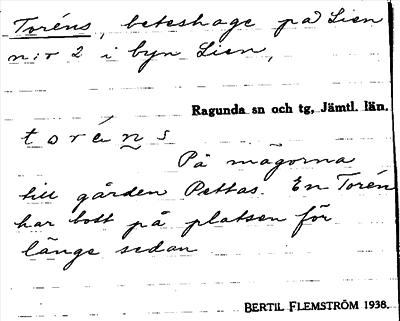 Toréns, beteshage på Lien
n:r 2 i byn Lien,
Ragunda sn och tg, Jämtl. län.
t o r é n s
På mågorna
till gården Pettas. En Torén
har bott på platsen för
länge sedan
BERTIL FLEMSTRÖM 1938.